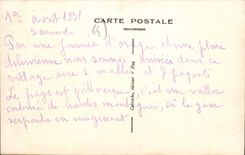 1er août 1931
Samedi
CARTE POSTALE
Par une journée d'orage et une pluie
diluvienne nous sommes arrivées dans ce
village avec 2 malles et 7 paquets
Le pays est pittoresque c'est un vallon
entouré de hautes montagnes, où le gave
serpente en mugissant